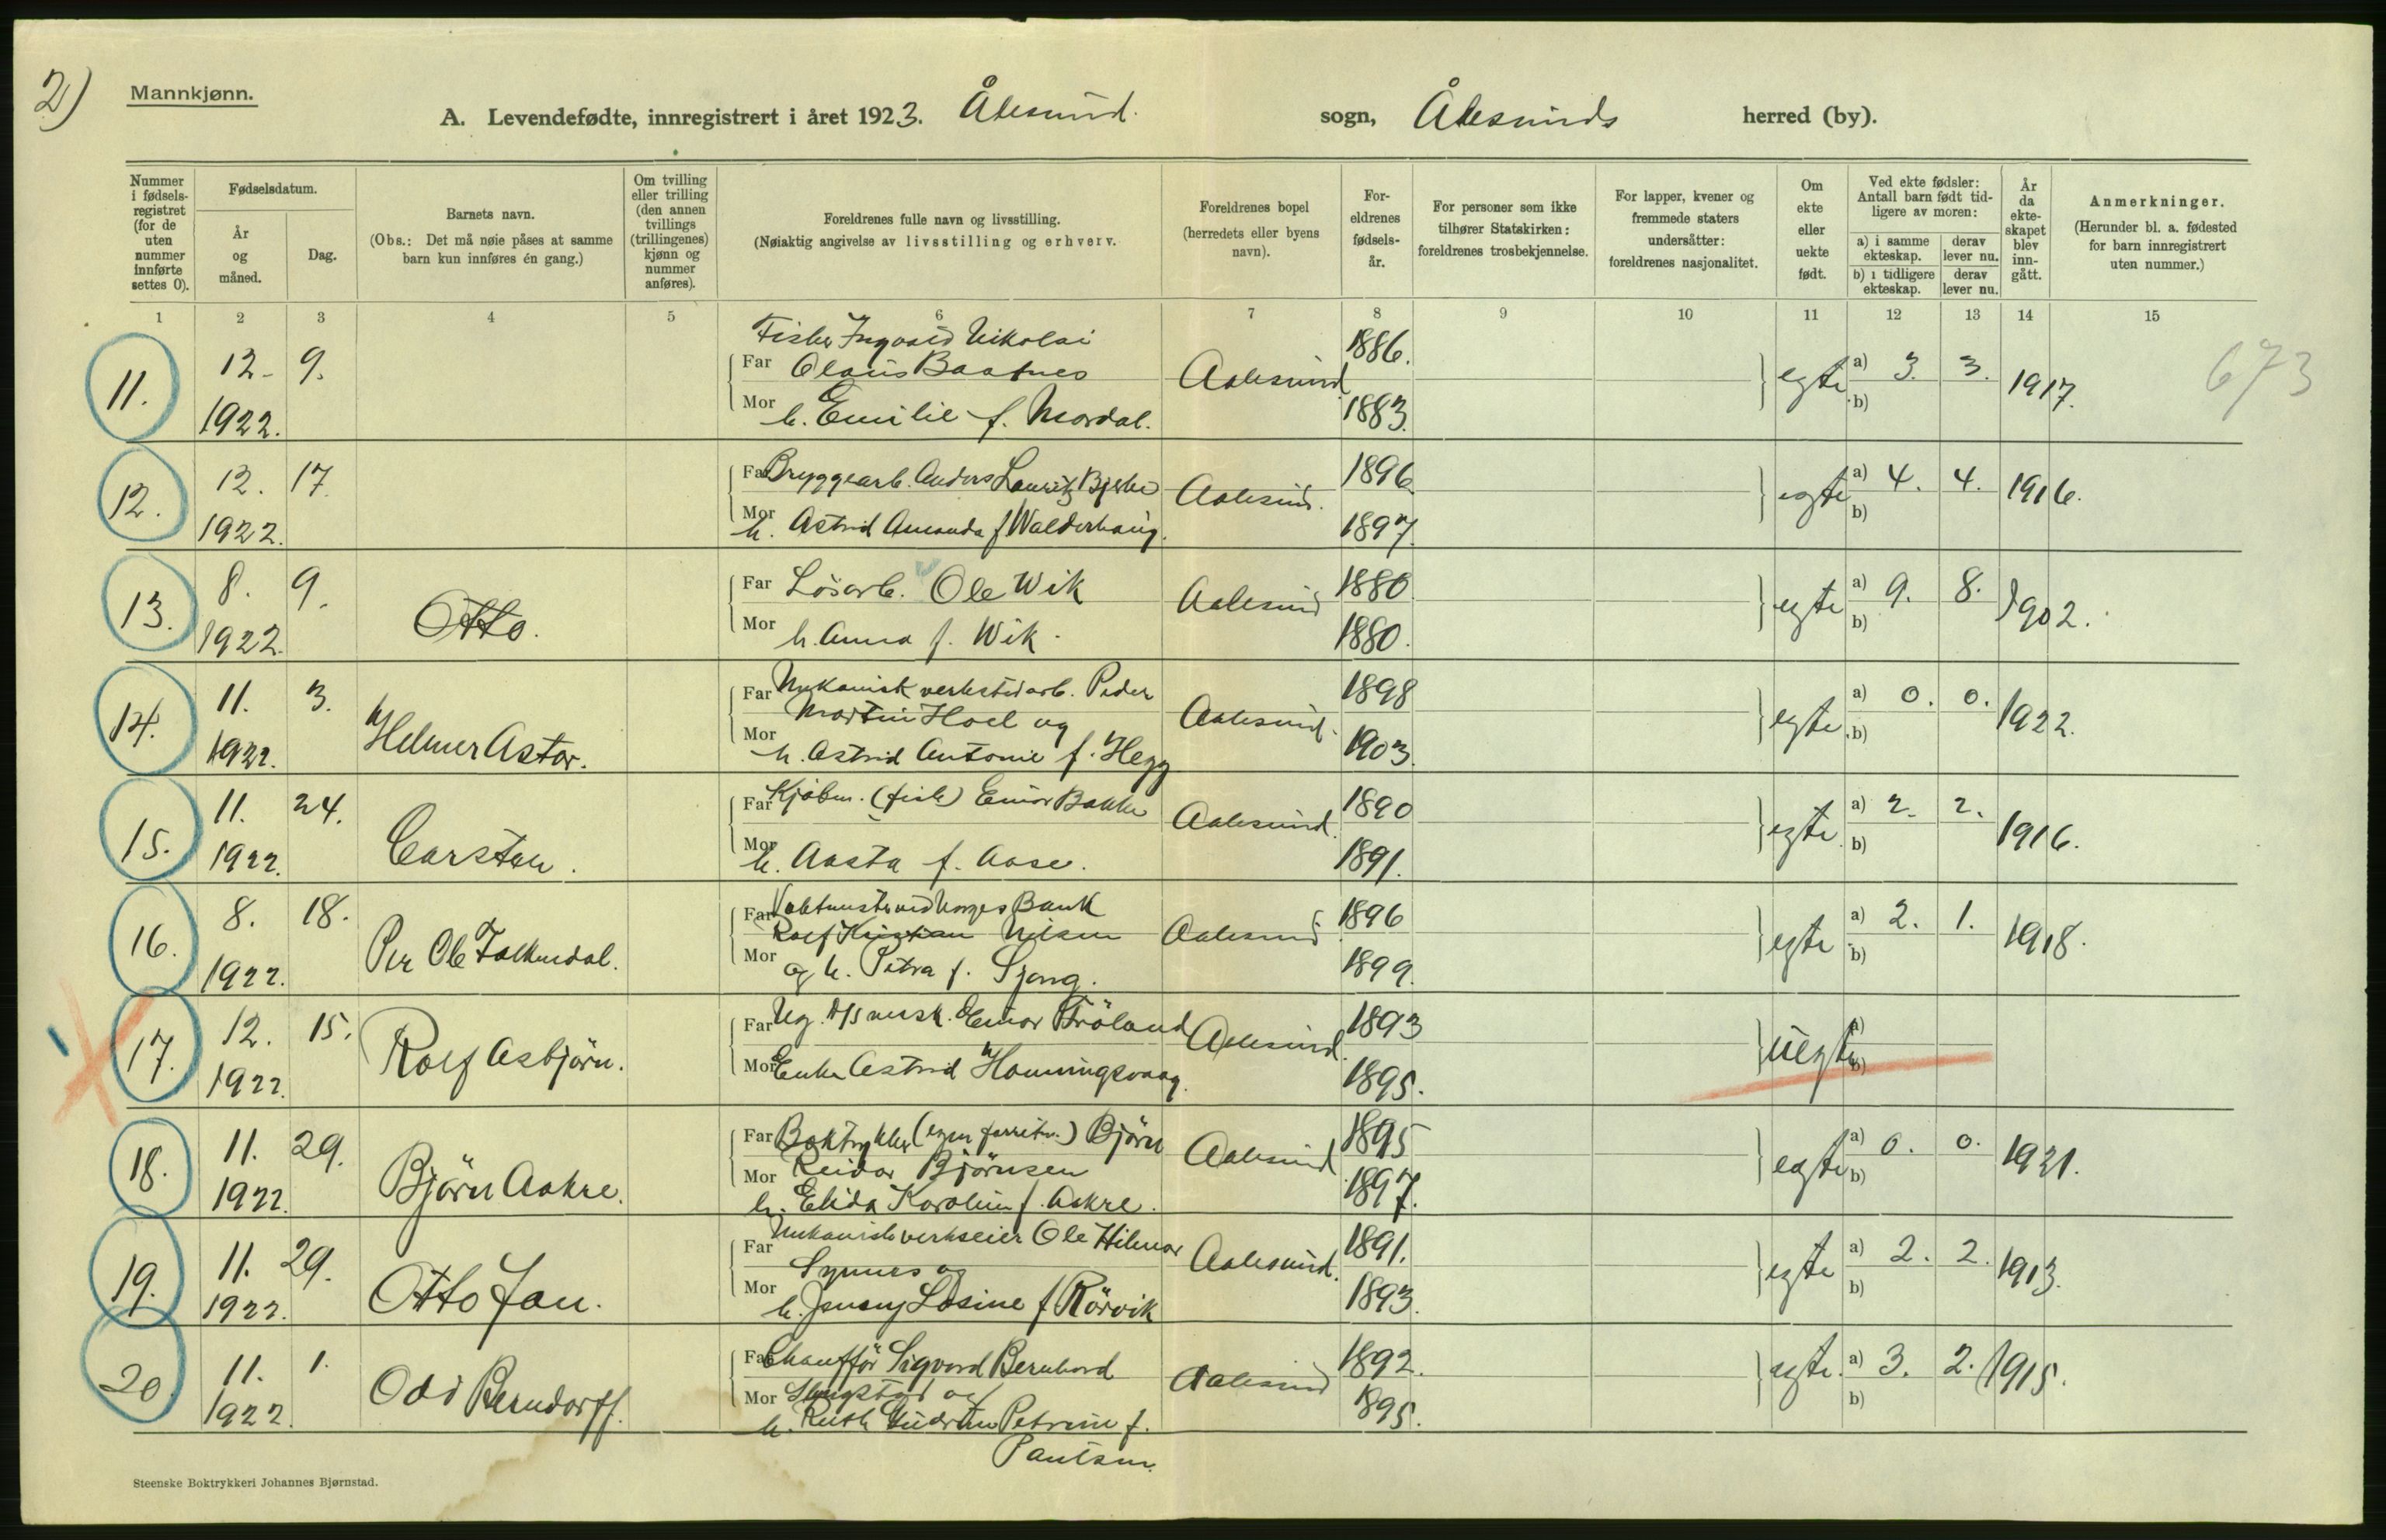 2)
Mannkjønn.
A. Levendefødte, innregistrert i året 1923. Ålesund. sogn, Ålesunds herred (by).
Nummer i fødselsregistret (for de uten nummer innførte settes 0).
Fødselsdatum.
År og måned.
Dag.
Barnets navn.
(Obs.: Det må nøie påses at samme barn kun innføres én gang.)
Om tvilling eller trilling (den annen tvillings (trillingenes) kjønn og nummer anføres).
Foreldrenes fulle navn og livsstilling.
(Nøiaktig angivelse av livsstilling og erhverv.
Foreldrenes bopel (herredets eller byens navn).
Foreldrenes fødselsår.
For personer som ikke tilhører Statskirken: foreldrenes trosbekjennelse.
For lapper, kvener og fremmede staters undersåtter: foreldrenes nasjonalitet.
Om ekte eller uekte født.
Ved ekte fødsler: Antall barn født tidligere av moren:
a) i samme ekteskap. derav lever nu.
b) i tidligere ekteskap. derav lever nu.
År da ekteskapet blev inngått.
Anmerkninger.
(Herunder bl. a. fødested for barn innregistrert uten nummer.)
1 2 3 4 5 6 7 8 9 10 11 12 13 14 15
673
11. 12- 9. 1922.
Fisker Ingvald Nikolai
Far Olaus Baatnes
Mor h. Emilie f. Mordal.
Aalesund 1886. 1883. egte a) 3. 3. b) 1917.
12. 12. 17. 1922.
Far Bryggearb. Anders Lauritz Bjerke
Mor h. Astrid Amanda f Walderhaug.
Aalesund. 1896 1897. egte a) 4. 4. b) 1916.
13. 8. 9. 1922. Otto.
Far Lösarb. Ole Wik
Mor h. Anna f. Wik.
Aalesund 1880 1880. egte a) 9. 8. b) 1902.
14. 11. 3. 1922. Helmer Astor.
Far Mekanisk verkstedarb. Peder
Martin Hoel og
Mor h. Astrid Antonie f. Hegg
Aalesund. 1898 1903. egte a) 0. 0. b) 1922.
15. 11. 24. 1922. Carsten.
Far Kjöbm. (fisk) Einar Bakke
Mor h. Aasta f. Aase.
Aalesund. 1890 1891. egte. a) 2. 2. b) 1916.
16. 8. 18. 1922. Per Ole Falkendal.
Far Vaktmester ved Norges Bank
Rolf Kristian Nilsen
Mor og h. Petra f. Sjong.
Aalesund 1896 1899. egte a) 2. 1. b) 1918.
17. 12. 15. 1922. Rolf Asbjörn.
Far Ug. Einar Fröland
Mor Enke Astrid Honningsvaag.
Aalesund. 1893 1895. uegte a) b)
18. 11. 29. 1922. Björn Aakre.
Far Boktrykker (egen forretn.) Björn
Mor Reidar Björnsen
h. Elida Karoline f. Aakre.
Aalesund 1895 1897. egte a) 0. 0. b) 1921.
19. 11. 29. 1922. Otto Jan.
Mekanisk verkseier Ole Hilmar
Far Synnes og
Mor h. Jenny Losine f Rörvik
Aalesund. 1891. 1893. egte a) 2. 2. b) 1913.
20. 11. 1. 1922. Odd Berndorff.
Far Chaufför Sigvard Bernhard
Mor og
h. Ruth Gudrun Petrine f.
Aalesund 1892. 1895. egte. a) 3. 2. b) 1915.
Steenske Boktrykkeri Johannes Bjørnstad.